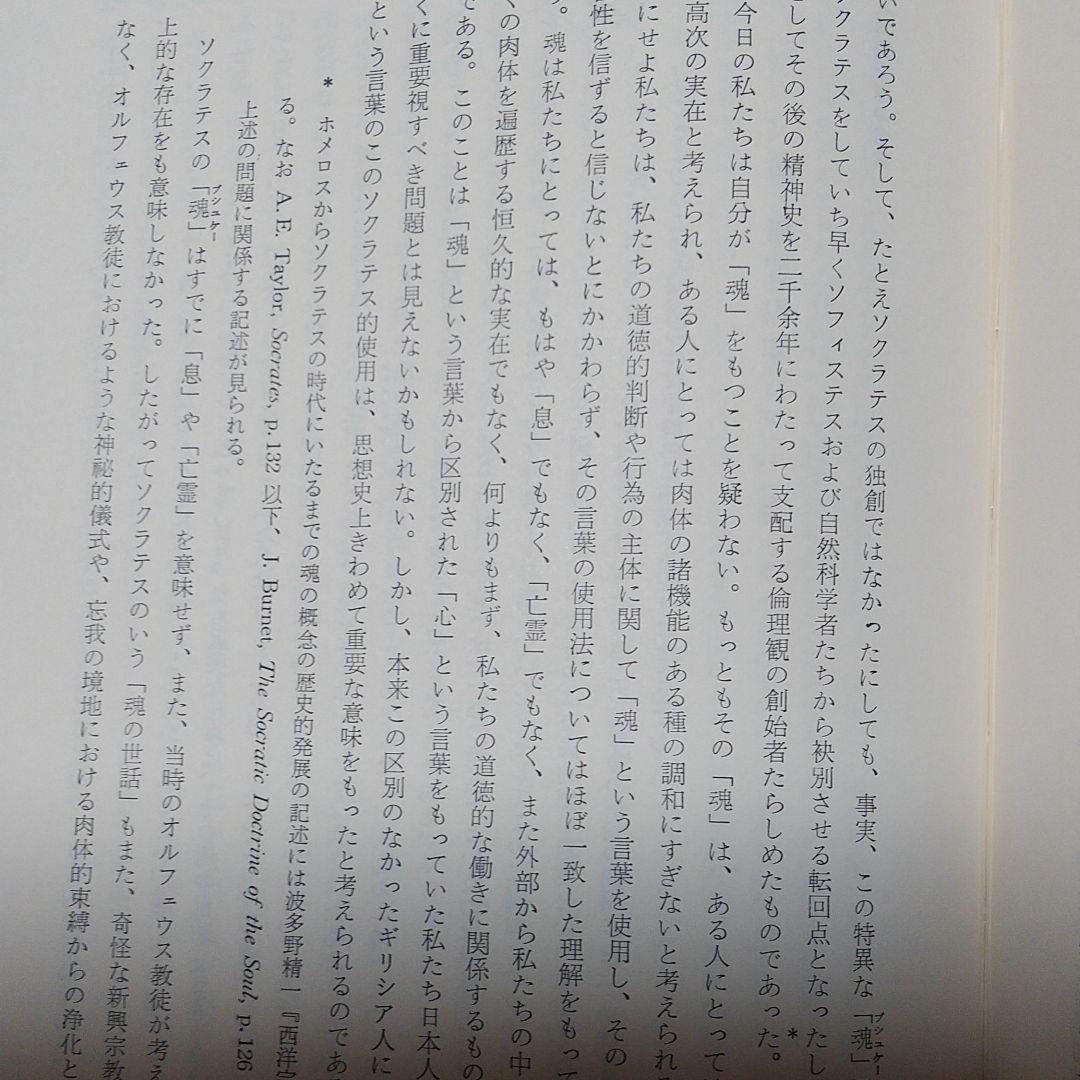 いであろう。そして、たとえソクラテスの独創ではなかったにしても、事実、この特異な「魂プシュケー」
クラテスをしていち早くソフィステスおよび自然科学者たちから袂別させる転回点となったし
としてその後の精神史を二千余年にわたって支配する倫理観の創始者たらしめたものであった。*
今日の私たちは自分が「魂」をもつことを疑わない。もっともその「魂」は、ある人にとって
高次の実在と考えられ、ある人にとっては肉体の諸機能のある種の調和にすぎないと考えられ
にせよ私たちは、私たちの道徳的判断や行為の主体に関して「魂」という言葉を使用し、その
性を信ずると信じないとにかかわらず、その言葉の使用法についてはほぼ一致した理解をもって
。魂は私たちにとっては、もはや「息」でもなく、「亡霊」でもなく、また外部から私たちの中
くの肉体を遍歴する恒久的な実在でもなく、何よりもまず、私たちの道徳的な働きに関係するもの
である。このことは「魂」という言葉から区別された「心」という言葉をもっていた私たち日本人
くに重要視すべき問題とは見えないかもしれない。しかし、本来この区別のなかったギリシア人に
という言葉のこのソクラテス的使用は、思想史上きわめて重要な意味をもったと考えられるのであ
* ホメロスからソクラテスの時代にいたるまでの魂の概念の歴史的発展の記述には波多野精一『西洋
る。なお A.E. Taylor, Socrates, p.132 以下、J. Burnet, The Socratic Doctrine of the Soul, p.126
上述の問題に関係する記述が見られる。
ソクラテスの「魂プシュケー」はすでに「息」や「亡霊」を意味せず、また、当時のオルフェウス教徒が考え
上的な存在をも意味しなかった。したがってソクラテスのいう「魂の世話」もまた、奇怪な新興宗教
なく、オルフェウス教徒におけるような神秘的儀式や、忘我の境地における肉体的束縛からの浄化と